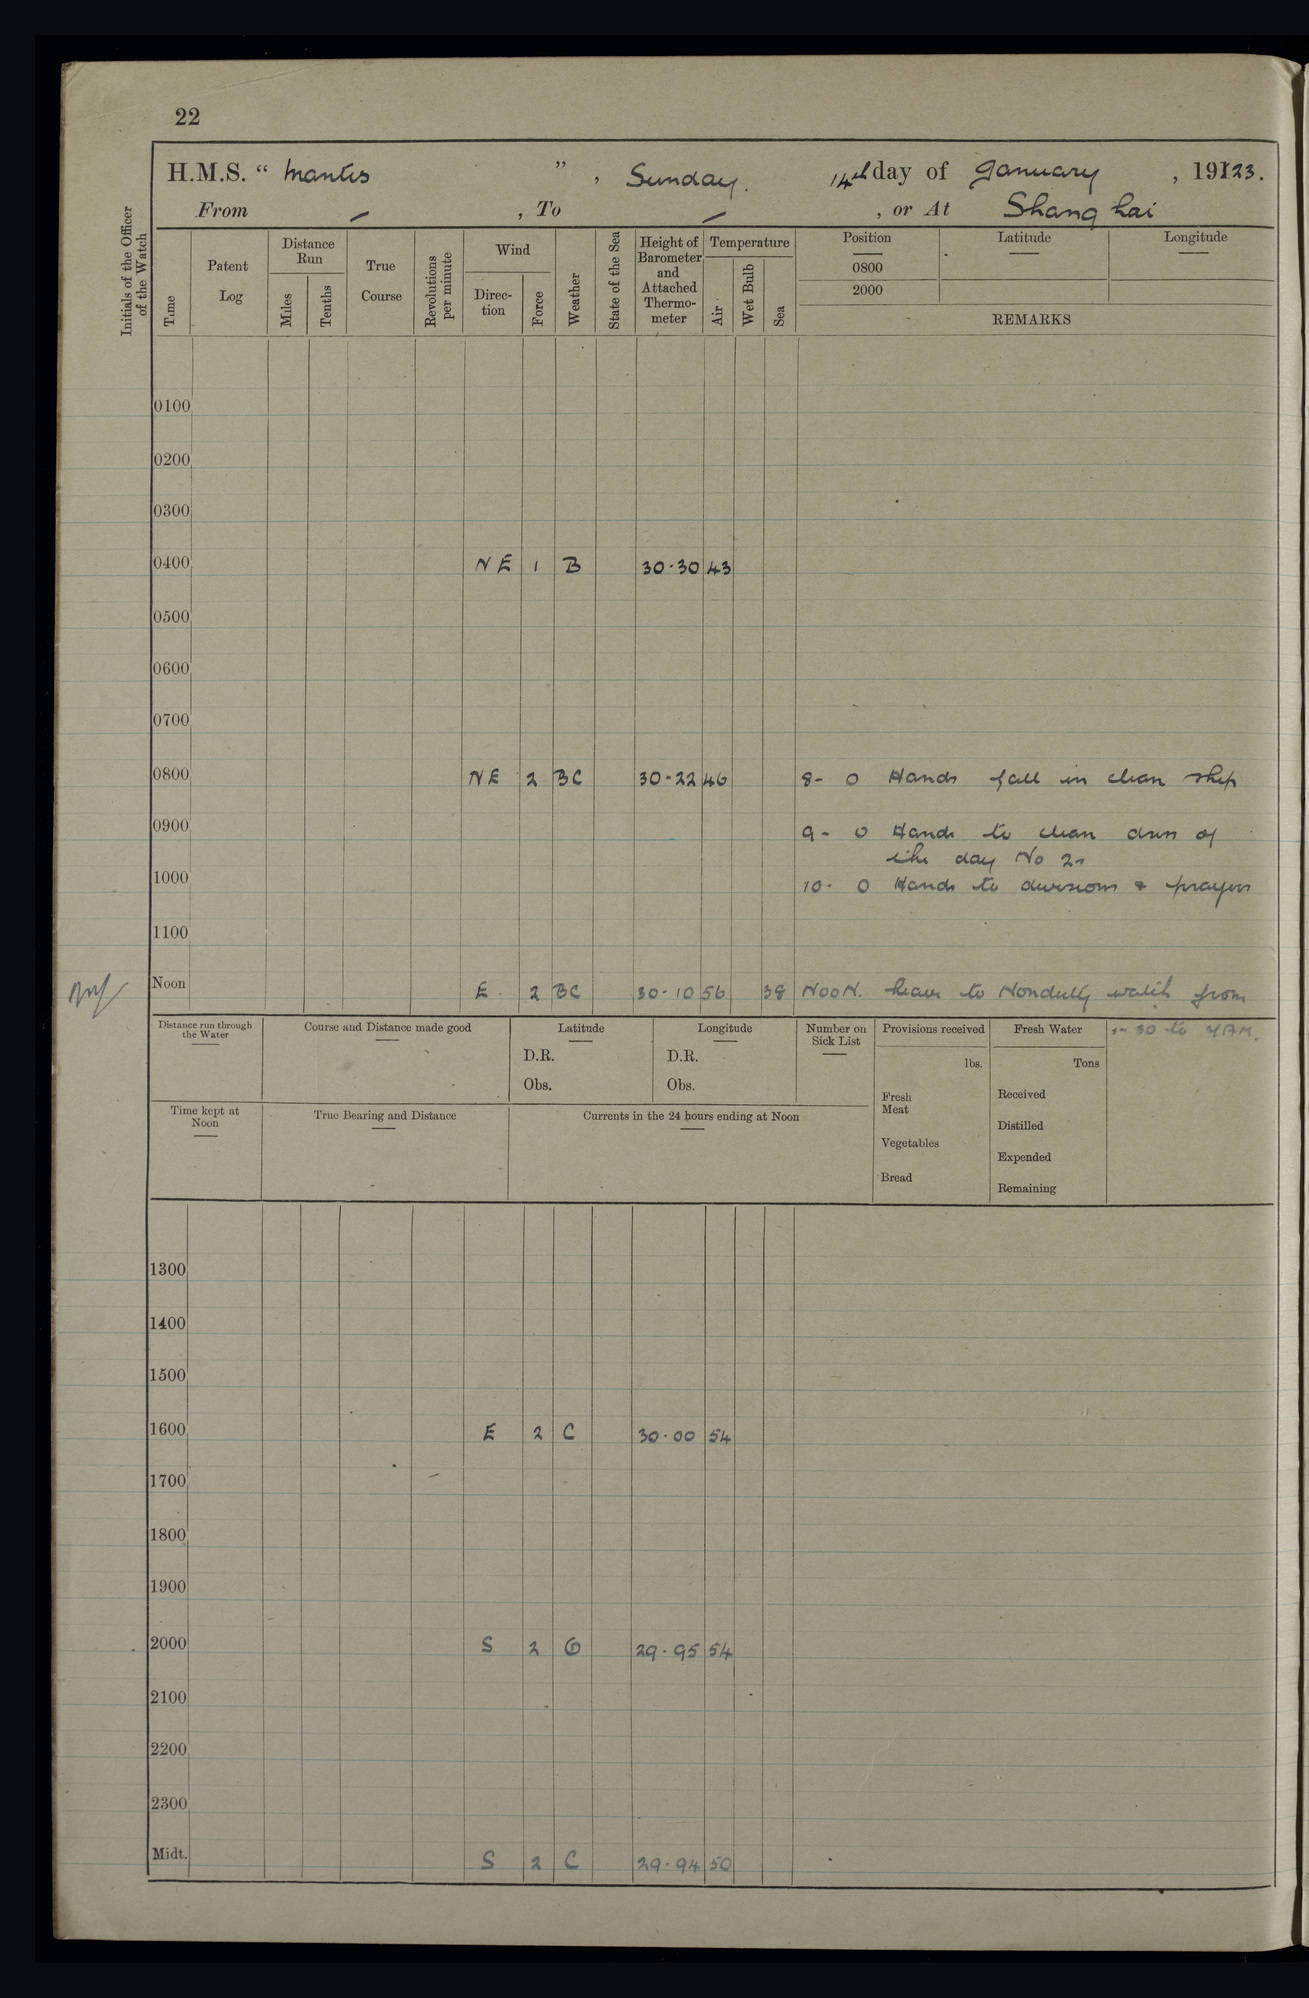 22
H.M.S. “ Mantis ”, Sunday. 14th day of January, 19123.
From – , To – , or At Shanghai
Initials of the Officer of the Watch
Time
Patent Log
Distance Run
Miles
Tenths
True Course
Revolutions per minute
Wind
Direction
Force
Weather
State of the Sea
Height of Barometer and Attached Thermometer
Temperature
Air
Wet Bulb
Sea
Position
0800
2000
Latitude
Longitude
REMARKS
0100
0200
0300
0400 NE 1 B 30·30 43
0500
0600
0700
0800 NE 2 BC 30-22 46 8- 0 Hands fall in clean ship
0900 9- 0 Hands to clean dress of
the day No 2s
1000 10- 0 Hands to divisions & prayers
1100
Noon E 2 BC 30-10 56 38 NOON. Leave to Nonduty watch from
1-30 to 7AM.
Distance run through the Water
Course and Distance made good
Latitude
D.R.
Obs.
Longitude
D.R.
Obs.
Number on Sick List
Provisions received
lbs.
Fresh Meat
Vegetables
Bread
Fresh Water
Tons
Received
Distilled
Expended
Remaining
Time kept at Noon
True Bearing and Distance
Currents in the 24 hours ending at Noon
1300
1400
1500
1600 E 2 C 30·00 54
1700
1800
1900
2000 S 2 O 29·95 54
2100
2200
2300
Midt. S 2 C 29-94 50